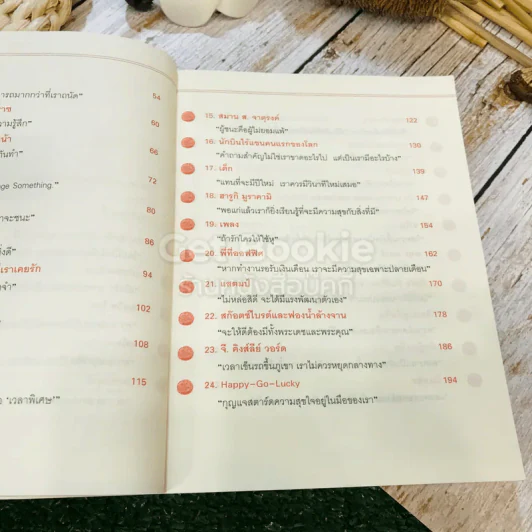 ารถมากกว่าที่เราถนัด" 54
าช 60
ามรู้สึก"
น้า 66
กันทำ"
72
ge Something."
80
าจะชนะ"
86
เราเคยรัก 94
102
108
115
อ 'เวลาพิเศษ'"
15. สมาน ส. จาตุรงค์ 122
"ผู้ชนะคือผู้ไม่ยอมแพ้"
16. นักบินไร้แขนคนแรกของโลก 130
"คำถามสำคัญไม่ใช่เราขาดอะไรไป แต่เป็นเรามีอะไรบ้าง"
17. เด็ก 139
"แทนที่จะมีปีใหม่ เราควรมีวินาทีใหม่เสมอ"
18. ฮารูกิ มูราคามิ 147
"พอแก่แล้วเราก็ยิ่งเรียนรู้ที่จะมีความสุขกับสิ่งที่มี"
19. เพลง 154
"ถ้ารักใครให้ใช้หู"
20. พี่ที่ออฟฟิศ 162
"หากทำงานรอรับเงินเดือน เราจะมีความสุขเฉพาะปลายเดือน"
21. แอสตมป์ 170
"ไม่หล่อสิดี จะได้มีแรงพัฒนาตัวเอง"
22. สก๊อตช์ไบรต์และฟองน้ำล้างจาน 178
"จะให้ดีต้องมีทั้งพระเดชและพระคุณ"
23. จี. คิงส์ลีย์ วอร์ด 186
"เวลาเข็นรถขึ้นภูเขา เราไม่ควรหยุดกลางทาง"
24. Happy-Go-Lucky 194
"กุญแจสตาร์ตความสุขใจอยู่ในมือของเรา"
Get Bookie
ร้านหนังสือบุ๊คกี้